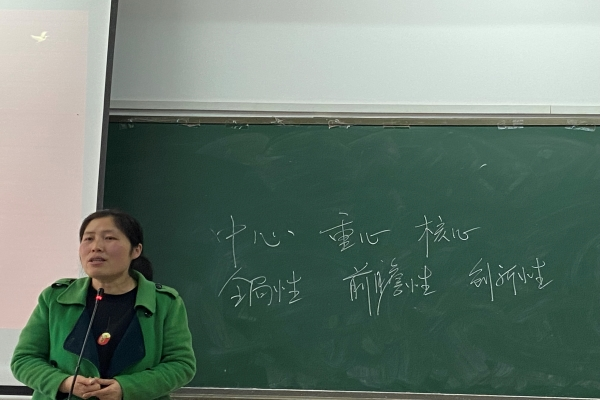 中心 重心 核心
全局性 前瞻性 创新性